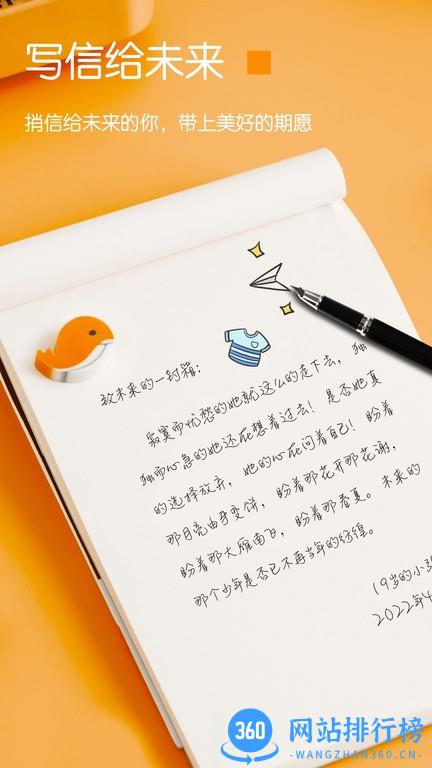 写信给未来
捎信给未来的你，带上美好的期愿
致未来的一封箱：
寂寞而忧愁的她就这么的走下去，独
独而心急的她还在想着过去！是否她真
的选择放弃，她的心在问着自己！盼着
那月亮由牙变饼，盼着那花开那花谢，
盼着那大雁南飞，盼着那春夏。未来的
那个少年是否已不再当年的
19岁的小
2022年4
360 网站排行榜
-WANGZHAN360.CN-